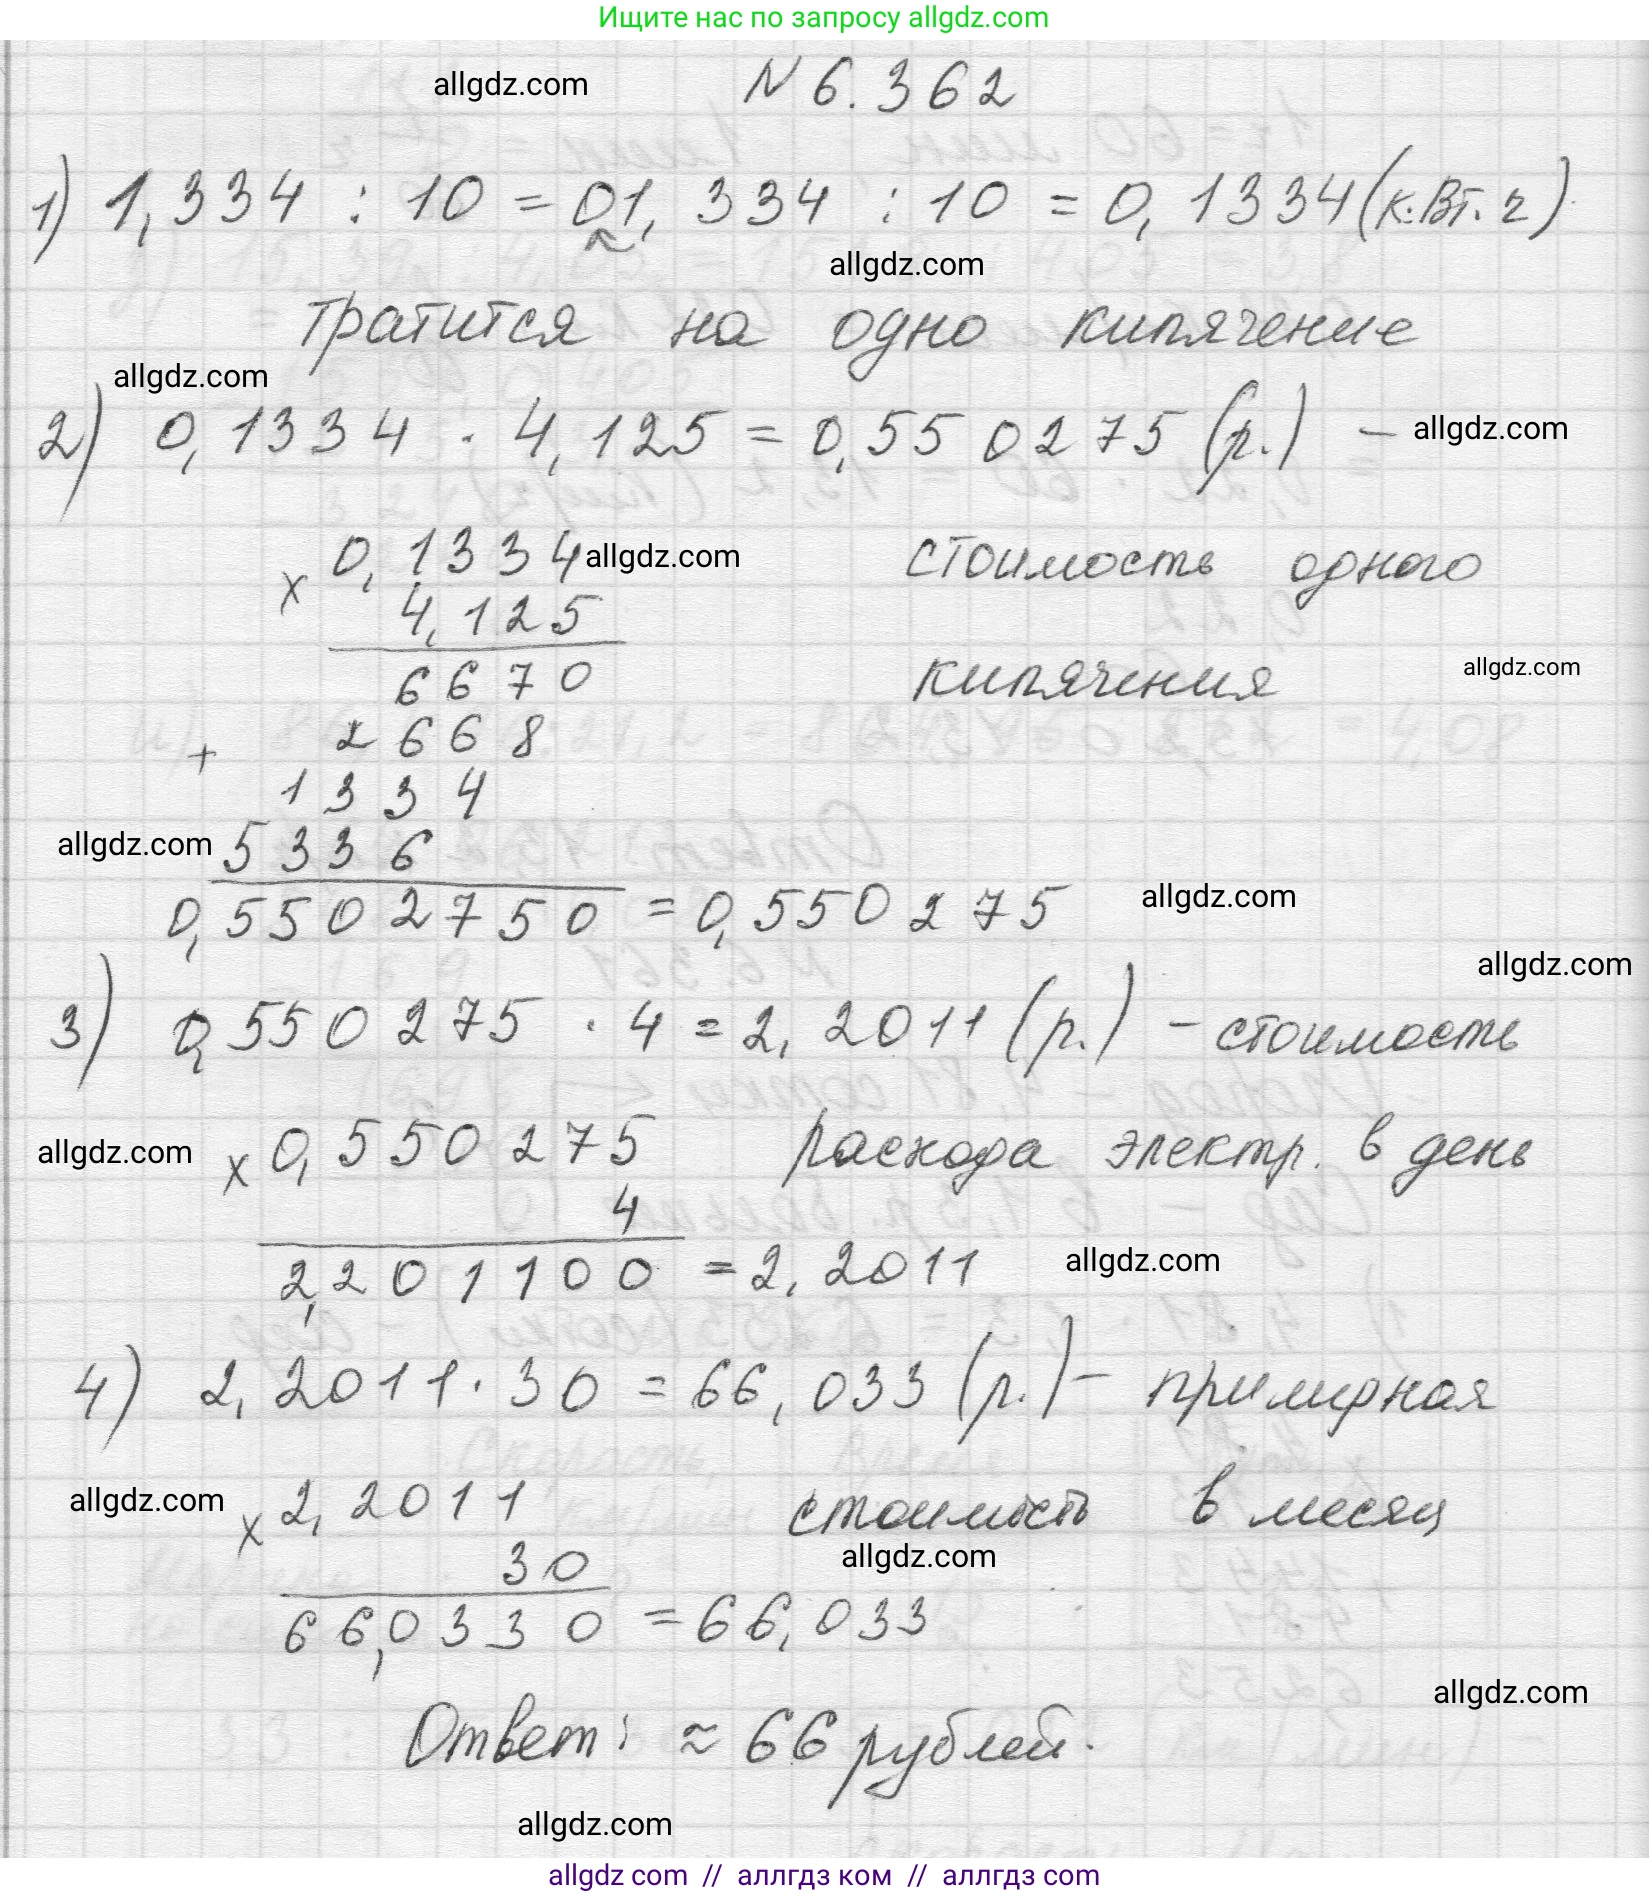 Ищите нас по запросу allgdz.com
allgdz.com
N 6.362
1) 1,334 : 10 = 01,334 : 10 = 0,1334 (к.Вт.ч)
allgdz.com
тратится на одно кипячение
allgdz.com
2) 0,1334 · 4,125 = 0,550275 (р.) –
allgdz.com
x 0,1334
allgdz.com
стоимость одного
4,125
6670
кипячения
allgdz.com
2668
+
1334
allgdz.com
5336
0,5502750 = 0,550275
allgdz.com
allgdz.com
3) 0,550275 · 4 = 2,2011 (р.) – стоимость
allgdz.com
x 0,550275
расхода электр. в день
4
2,201100 = 2,2011
allgdz.com
4) 2,2011 · 30 = 66,033 (р.) – примерная
allgdz.com
x 2,2011
стоимость в месяц
30
allgdz.com
66,0330 = 66,033
allgdz.com
Ответ: ≈ 66 рублей.
allgdz.com
allgdz com // аллгдз ком // аллгдз com